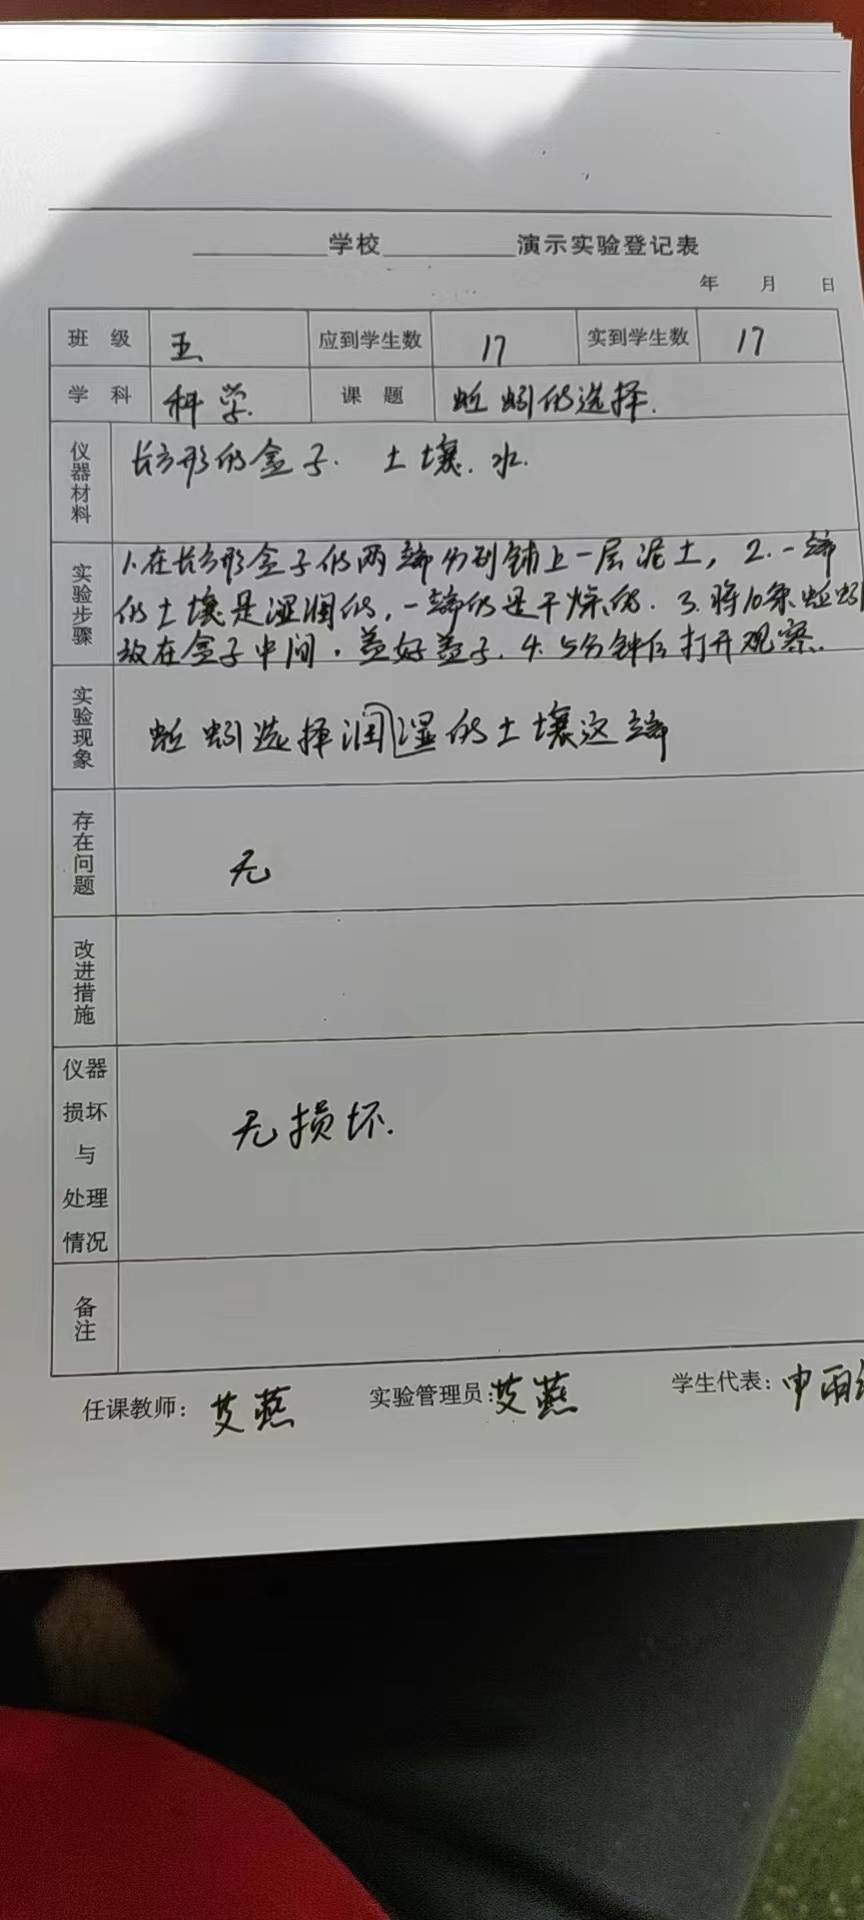 ________学校________演示实验登记表
年 月 日
班 级 五 应到学生数 17 实到学生数 17
学 科 科学. 课 题 蚯蚓的选择.
仪器材料 长方形的盒子. 土壤. 水.
实验步骤 1.在长方形盒子的两端分别铺上一层泥土, 2.一端
的土壤是湿润的,一端的是干燥的. 3.将10条蚯蚓
放在盒子中间.盖好盖子. 4.5分钟后打开观察.
实验现象 蚯蚓选择润湿的土壤这端
存在问题 无
改进措施
仪器损坏与处理情况 无损坏.
备注
任课教师: 艾燕 实验管理员: 艾燕 学生代表: 申雨